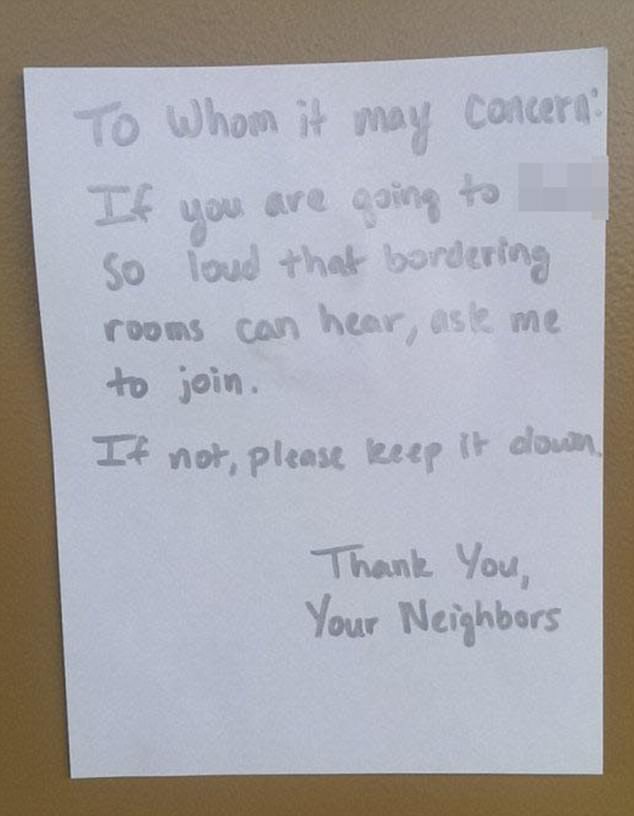 To Whom it may Concern:
If you are going to
so loud that bordering
rooms can hear, ask me
to join.
If not, please keep it down.
Thank You,
Your Neighbors